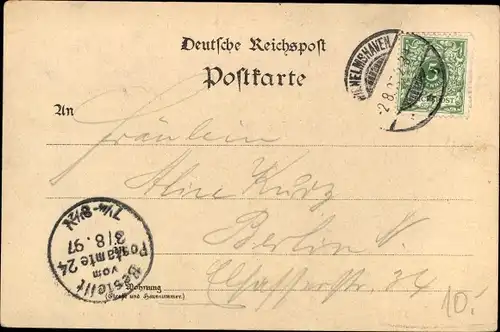 Deutsche Reichspost
Postkarte
WILHELMSHAVEN
2.8.97
5
An
Fräulein
Alice Kurz
Berlin N.
Elsasserstr. 34
Wohnung
(Straße und Hausnummer)
Bestellt
vom
Postamte 24
3/8.97
7¼-8½V
10.-